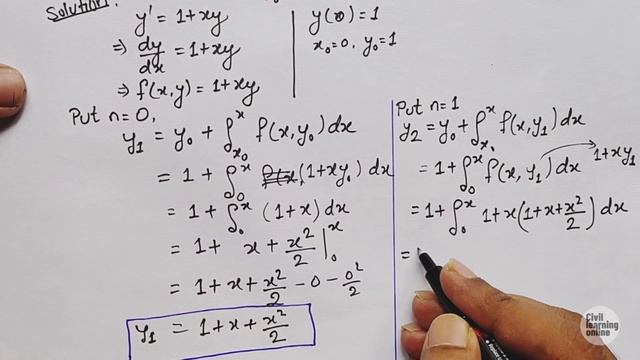 Solution:
y' = 1+xy
⇒ dy/dx = 1+xy
⇒ f(x,y) = 1+xy
y(0) = 1
x₀=0, y₀=1
Put n=0,
y₁ = y₀ + ∫_{x₀}^{x} f(x,y₀) dx
= 1 + ∫_0^x (1+xy₀) dx
= 1 + ∫_0^x (1+x) dx
= 1 + x + x²/2 |_0^x
= 1+x+x²/2 - 0 - 0²/2
y₁ = 1+x+x²/2
Put n=1
y₂ = y₀ + ∫_{x₀}^{x} f(x,y₁) dx
= 1 + ∫_0^x f(x,y₁) dx → 1+xy₁
= 1 + ∫_0^x 1+x(1+x+x²/2) dx
=
Civil
learning
online